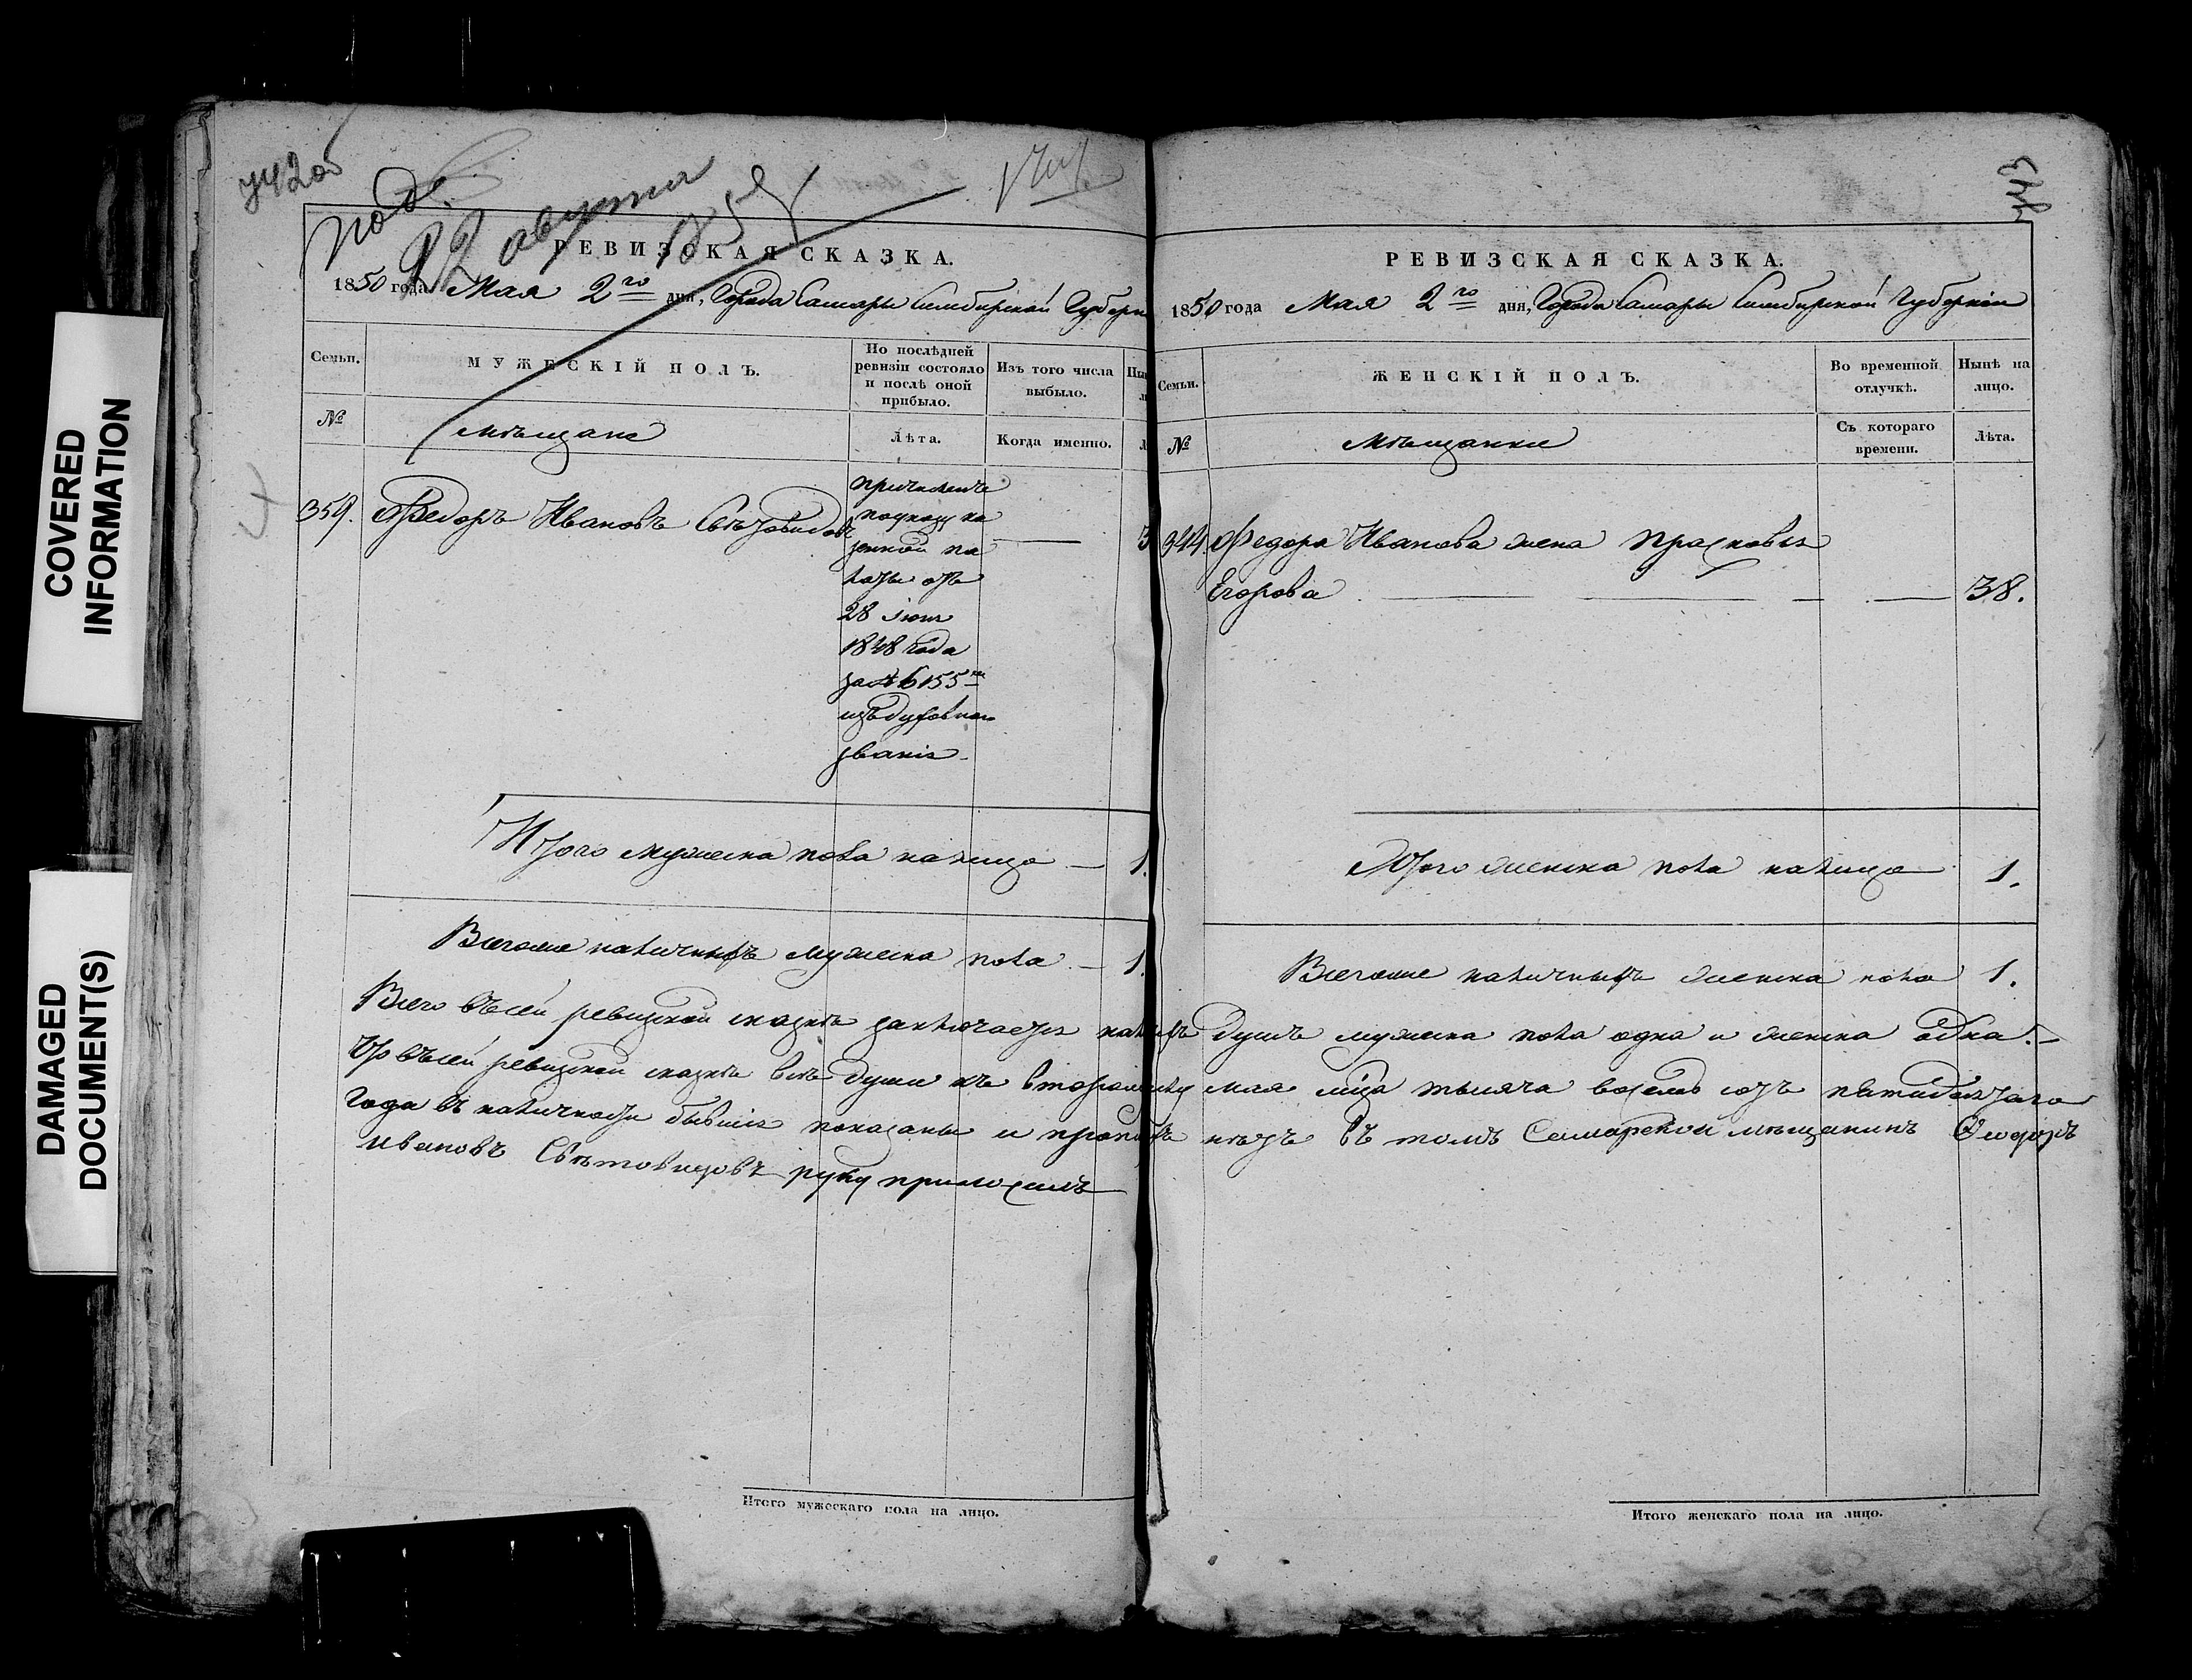 COVERED
INFORMATION
DAMAGED
DOCUMENT(S)
под.
августа
РЕВИЗСКАЯ СКАЗКА.
1850 года Мая 2го дня, Города Самары Симбирской Губерн
Семьи.
МУЖЕСКІЙ ПОЛЪ.
По послѣдней
ревизіи состояло
и послѣ оной
прибыло.
Изъ того числа
выбыло.
№
мѣщане
Лѣта.
Когда именно.
359. Федоръ Ивановъ Свѣтовидовъ
причисленъ
поуказу ка
зенной па
латы отъ
28 Іюня
1848 года
за № 6155м
изъ духовнаго
званія
Итого мужеска пола налицо — 1.
Всегоже наличныхъ мужеска пола — 1.
РЕВИЗСКАЯ СКАЗКА.
1850 года Мая 2го дня, Города Самары Симбирской Губерніи
Семьи.
ЖЕНСКІЙ ПОЛЪ.
Во временной
отлучкѣ.
Нынѣ на
лицо.
№
Мѣщанки
Съ котораго
времени.
Лѣта.
944. Федора Иванова жена Прасковья
Егорова — 38.
Итого женска пола налицо 1.
Всегоже наличныхъ женска пола 1.
Всего въсей ревизской сказкѣ заключается налицо душъ мужеска пола одна и женска одна.
Что въсей ревизской сказкѣ всѣ души ко второму мая мца тысяча восемь сотъ пятидесятаго
Года въ наличности бывшія показаны и прописныхъ нѣтъ Въ томъ Самарской мѣщанинъ Ѳеодоръ
Ивановъ Свѣтовидовъ руку приложилъ
Итого мужескаго пола на лицо.
Итого женскаго пола на лицо.